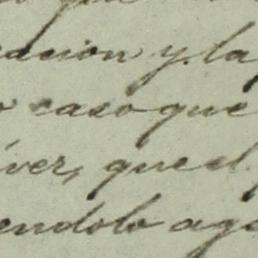 acion y la
o caso que
iver, que el
endolo ag